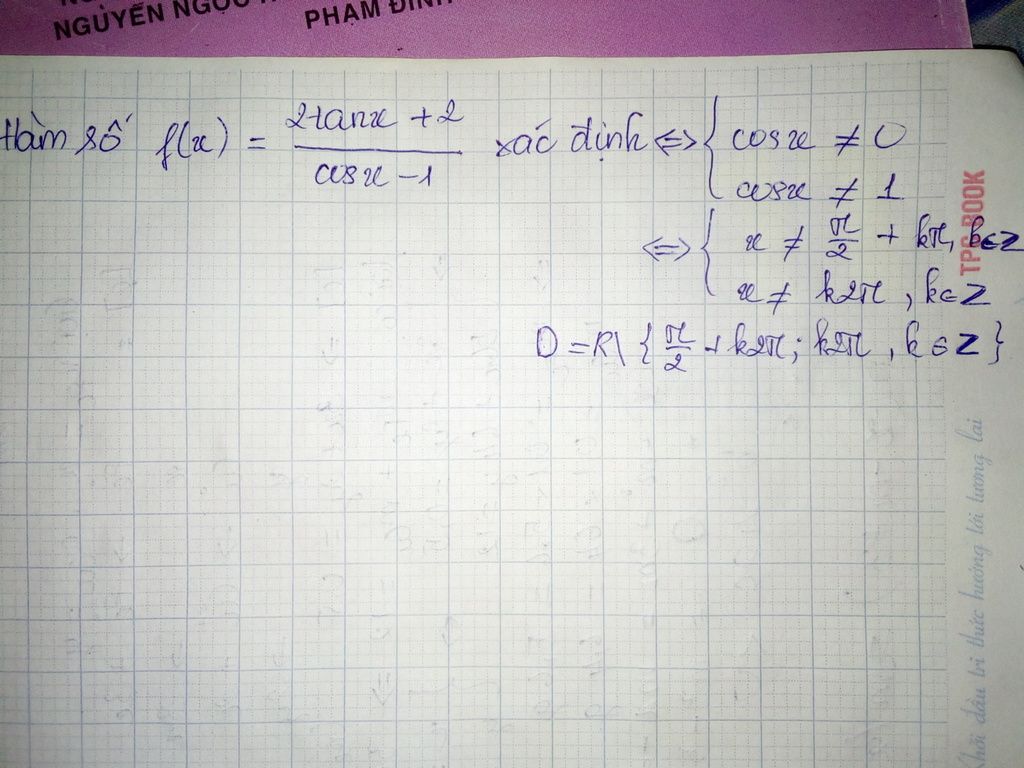 NGUYỄN NGỌC
PHẠM ĐÌNH
Hàm số f(x) = (2tanx + 2)/(cosx - 1) xác định <=> { cosx ≠ 0
cosx ≠ 1
<=> { x ≠ π/2 + kπ, k∈Z
x ≠ k2π, k∈Z
D = R\ { π/2 + k2π; k2π, k∈Z }
TPG BOOK
Khởi đầu tri thức hướng tới tương lai